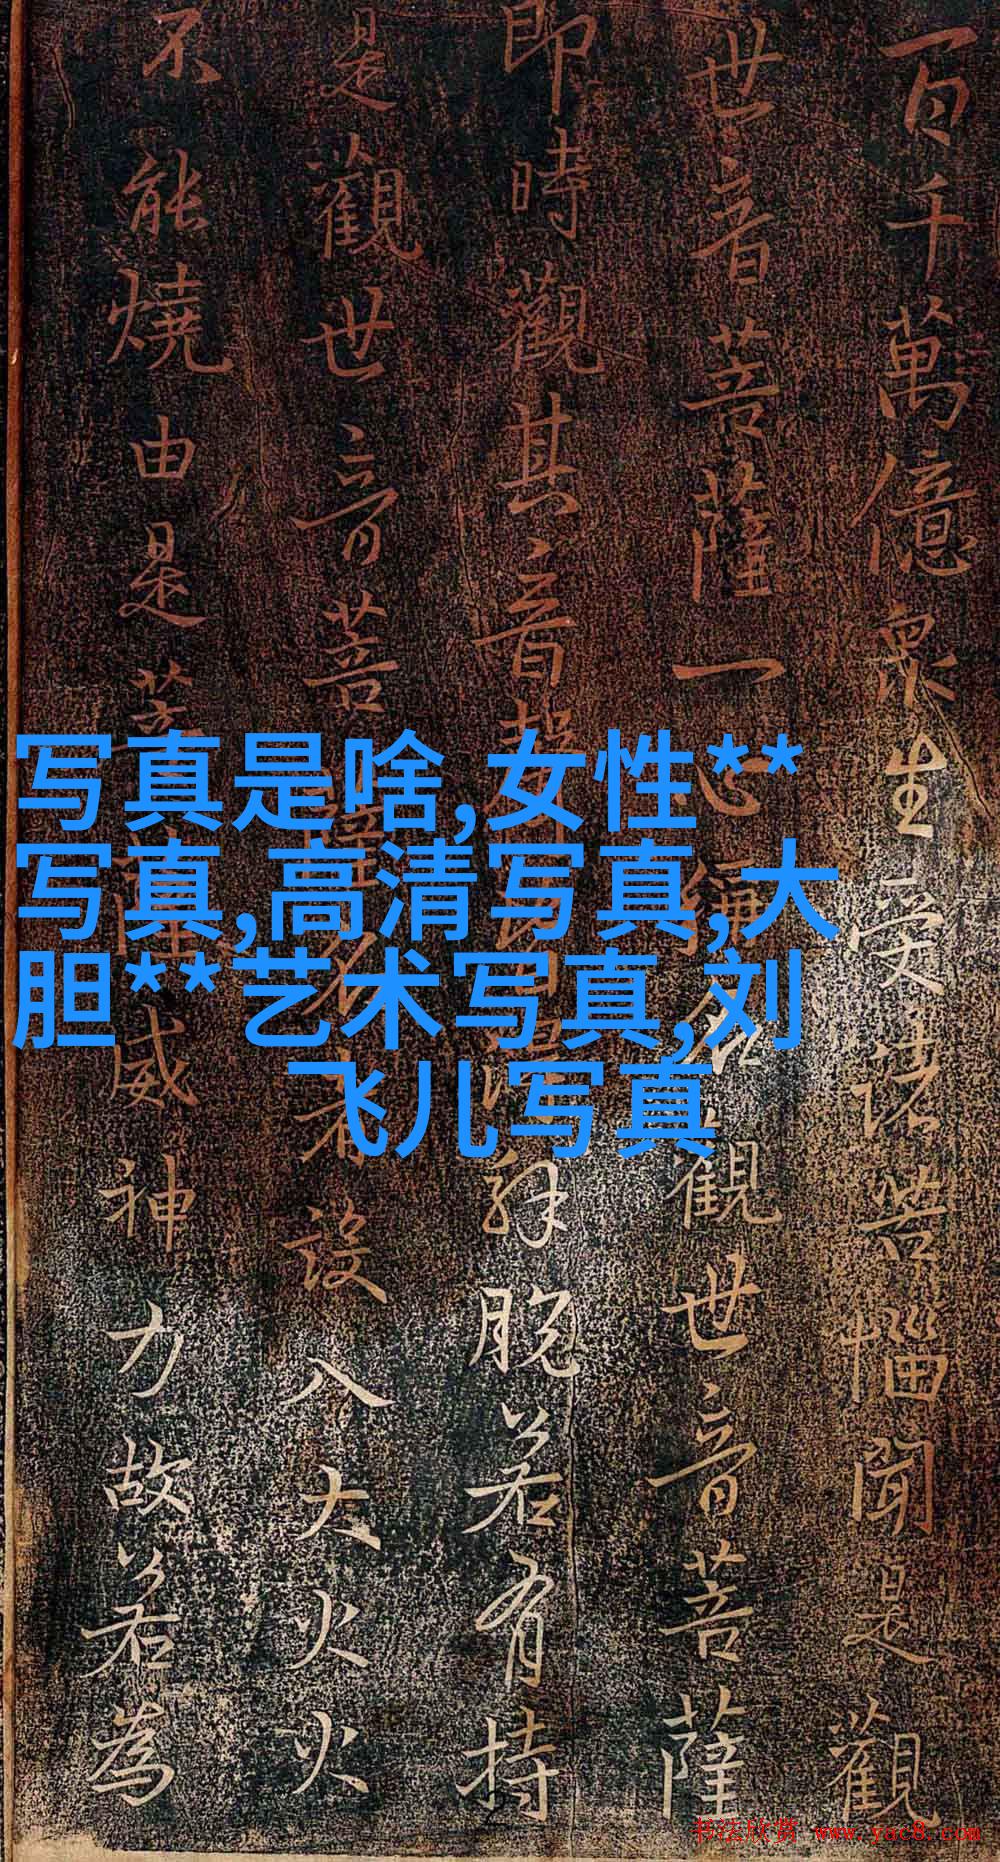 百千萬億眾生受諸苦惱聞是觀
世音菩薩一心稱名觀世音菩薩
即時觀其音聲皆得解脫若有持
是觀世音菩薩名者設入大火火
不能燒由是菩薩威神力故若為
写真是啥,女性**
写真,高清写真,大
胆**艺术写真,刘
飞儿写真
书法欣赏 www.yac8.com